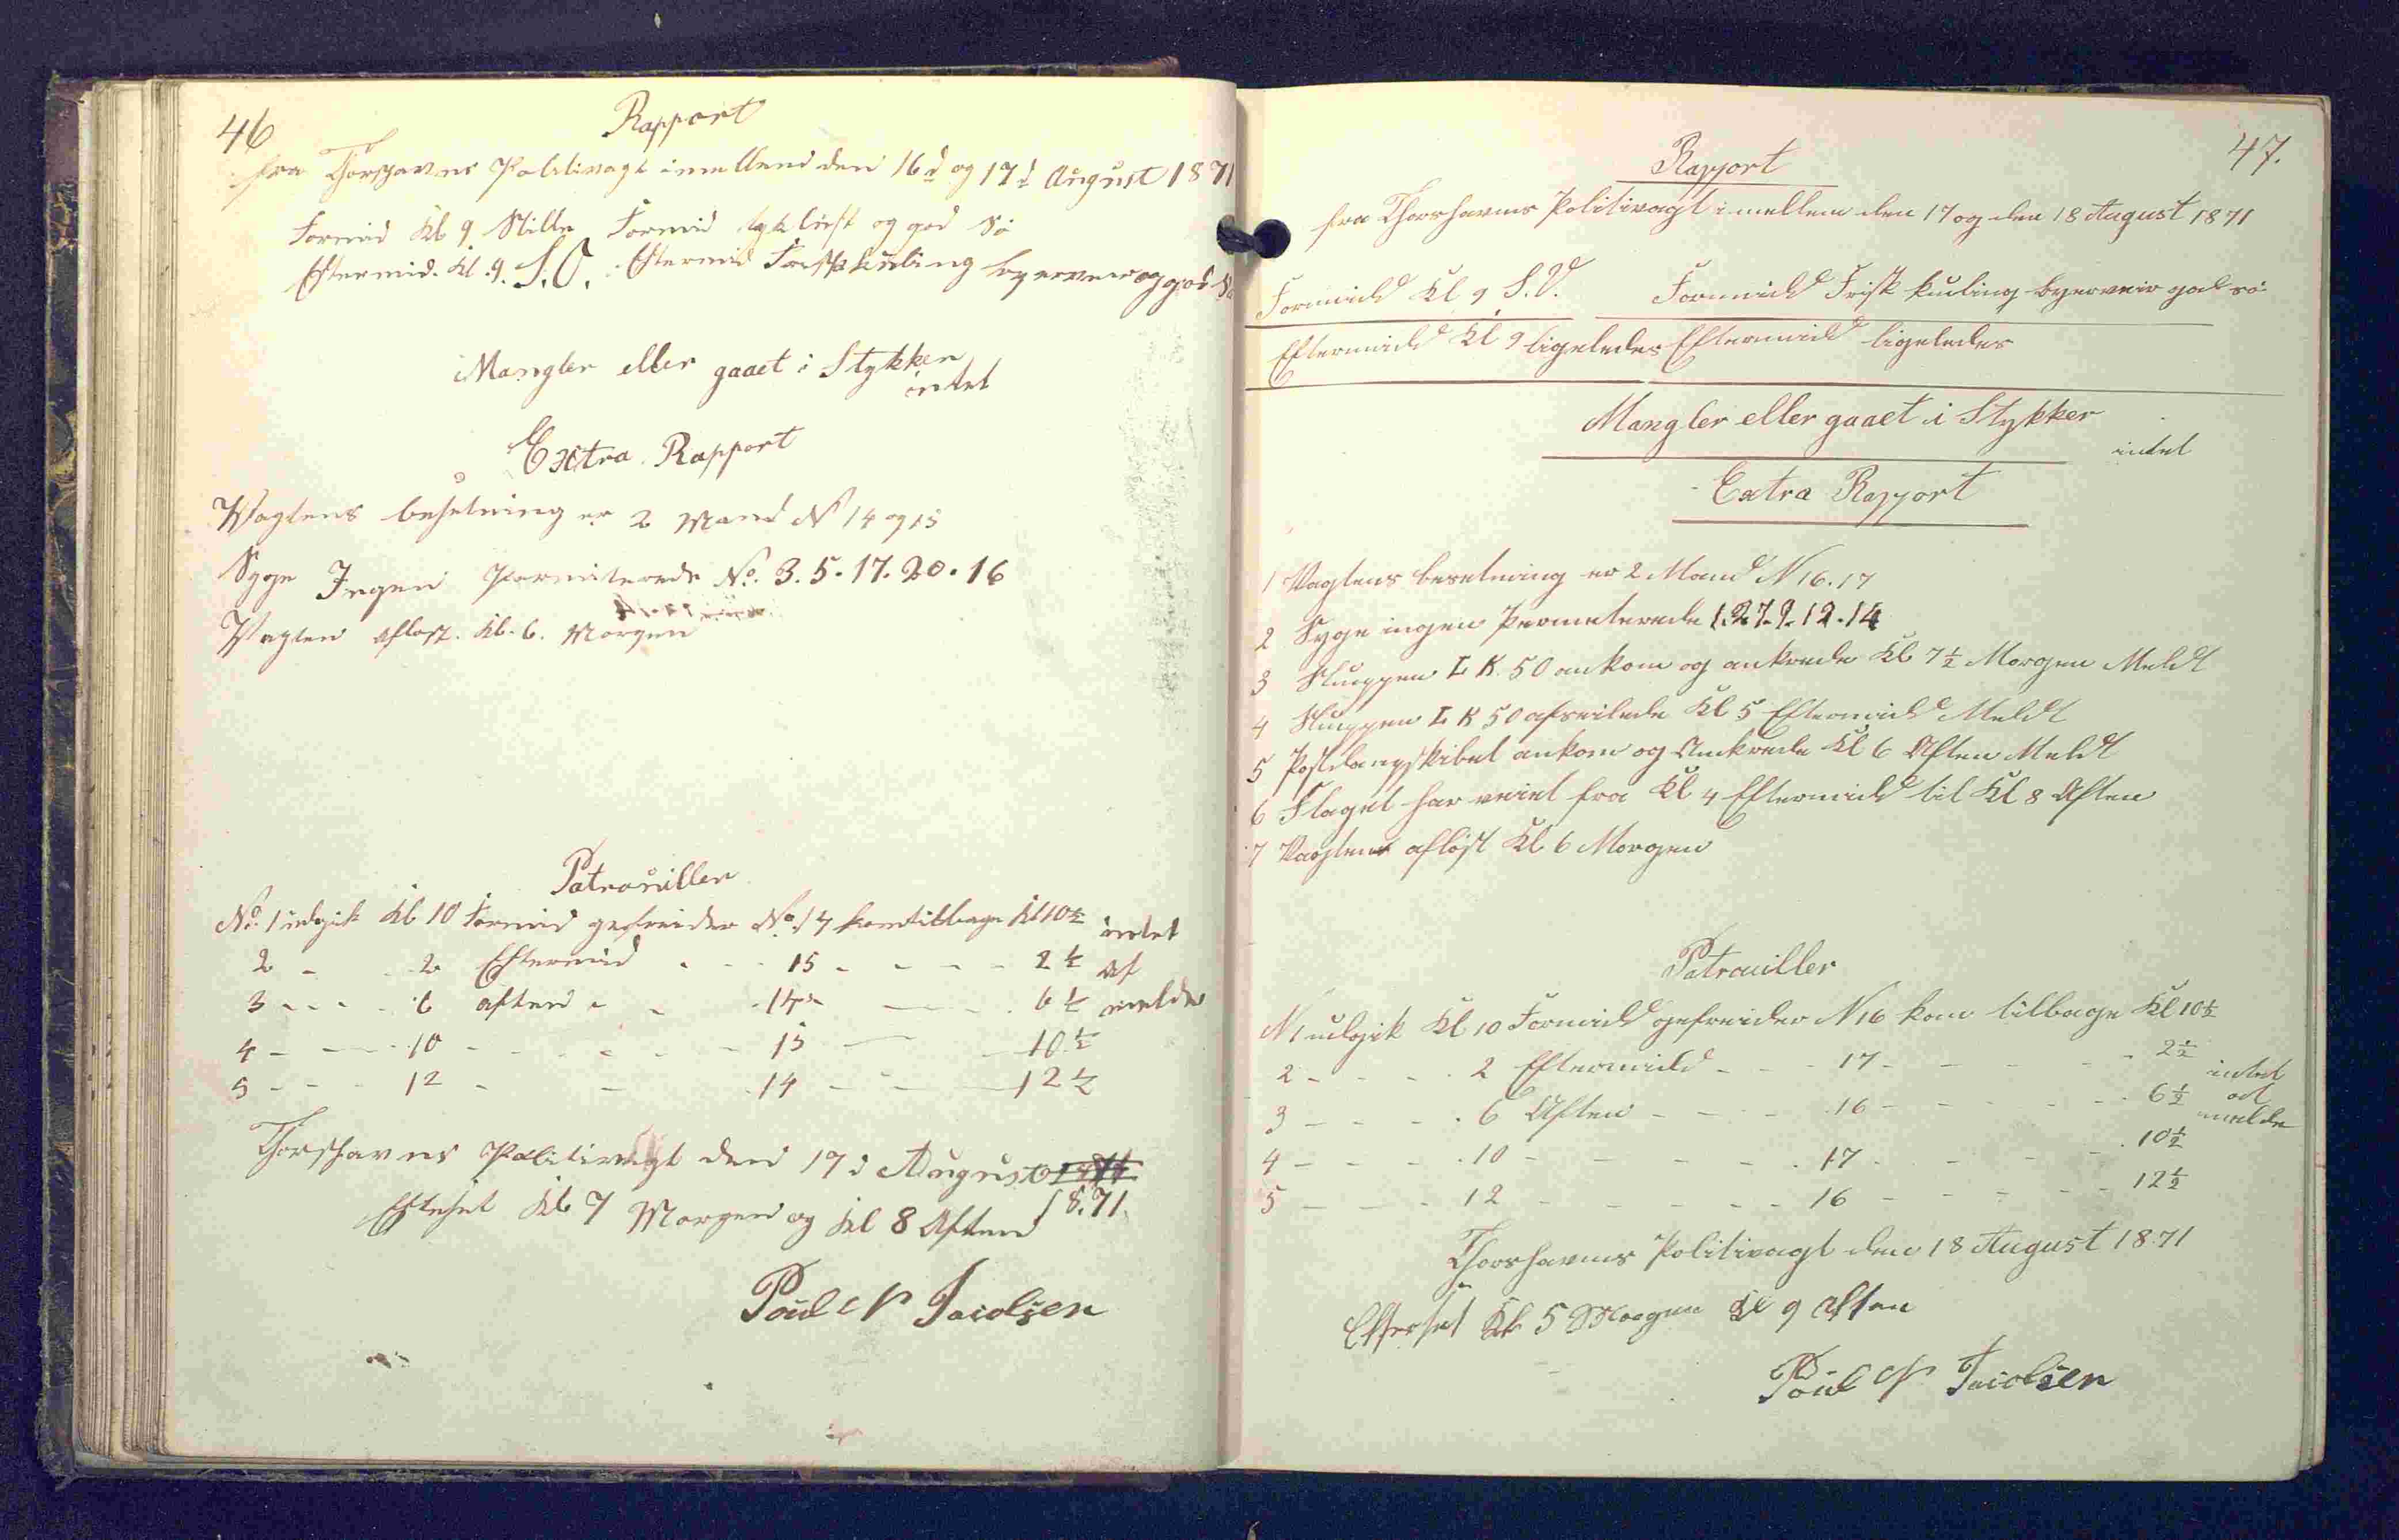 46
Rapport
fra Thorshavns Politivagt imellem den 16d og 17d August 1871
Formid Kl 9 Stille Formid tyk luft og god Sö
Eftermid. Kl. 9. S.O. Eftermid Frisk kuling byerveir og god Sö
Mangler eller gaaet i Stykker
intet
Extra Rapport
Vagtens besetning er 2 Mand N 14 og 15
Syge Ingen Permiterede No. 3. 5. 17. 20. 16
Vagten aflöst. Kl. 6. Morgen
Patrouiller
No. 1 udgik Kl 10 Formid gefreider No. 14 kom tilbage Kl 10 ½ intet
2 - - 2 Eftermid - - - 15 - - - - 2 ½ at
3 - - - 6 aften - - 14 - - 6 ½ melde
4 - - - 10 - - - - - 15 - - 10 ½
5 - - - 12 - - 14 - - - 12 ½
Thorshavns Politivagt den 17d August
1871.
Efteset Kl 7 Morgen og Kl 8 Aften
Poul N Jacobsen
47.
Rapport
fra Thorshavns Politivagt imellem den 17 og den 18 August 1871
Formidd Kl 9 S.V. Formidd Frisk kuling byerveir god sö
Eftermidd Kl 9 ligeledes Eftermidd ligeledes
Mangler eller gaaet i Stykker
intet
Extra Rapport
1 Vagtens besetning er 2 Mand N 16. 17
2 Syge ingen Permeterede 1. 2. 7. 9. 12. 14
3 Sluppen L K. 50 ankom og ankrede Kl 7 ½ Morgen Meldt
4 Sluppen L K 50 afseilede Kl 5 Eftermidd Meldt
5 Postdampskibet ankom og Ankrede Kl 6 Aften Meldt
6 Flaget har veiet fra Kl 4 Eftermidd til Kl 8 Aften
7 Vagten aflöst Kl 6 Morgen
Patrouiller
N 1 udgik Kl 10 Formidd gefreider N 16 kom tilbage Kl 10 ½
2 - - - - 2 Eftermidd - - - 17 - - - - 2 ½ intet
3 - - - - 6 Aften - - - - 16 - - - - - 6 ½ at
melde
4 - - - - 10 - - - - - 17 - - - - 10 ½
5 - - - 12 - - - - - 16 - - - - - 12 ½
Thorshavns Politivagt den 18 August 1871
Efterset Kl 5 Morgen Kl 9 Aften
Poul N Jacobsen